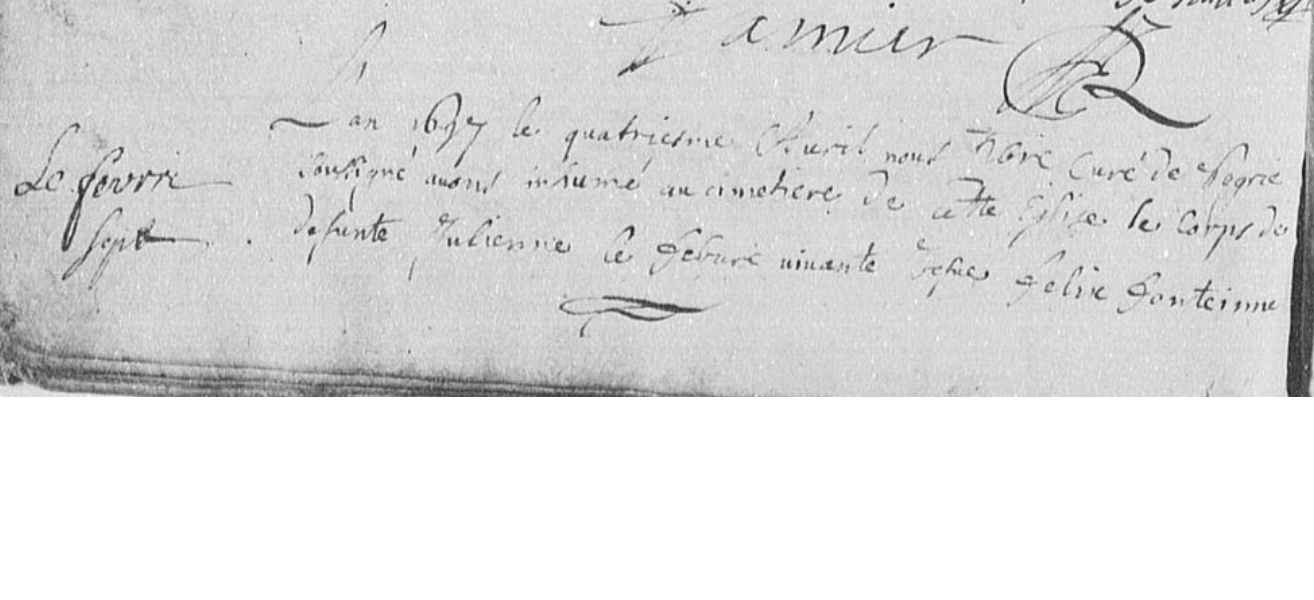 Lamier
Lan 1697 le quatriesme Avril nous Pbre Curé de
Le febvre
soussigné avons inhumé au cimetiere de cette Eglise le corps de
Sept
defunte Julienne le febvre vivante Felix fonteinne